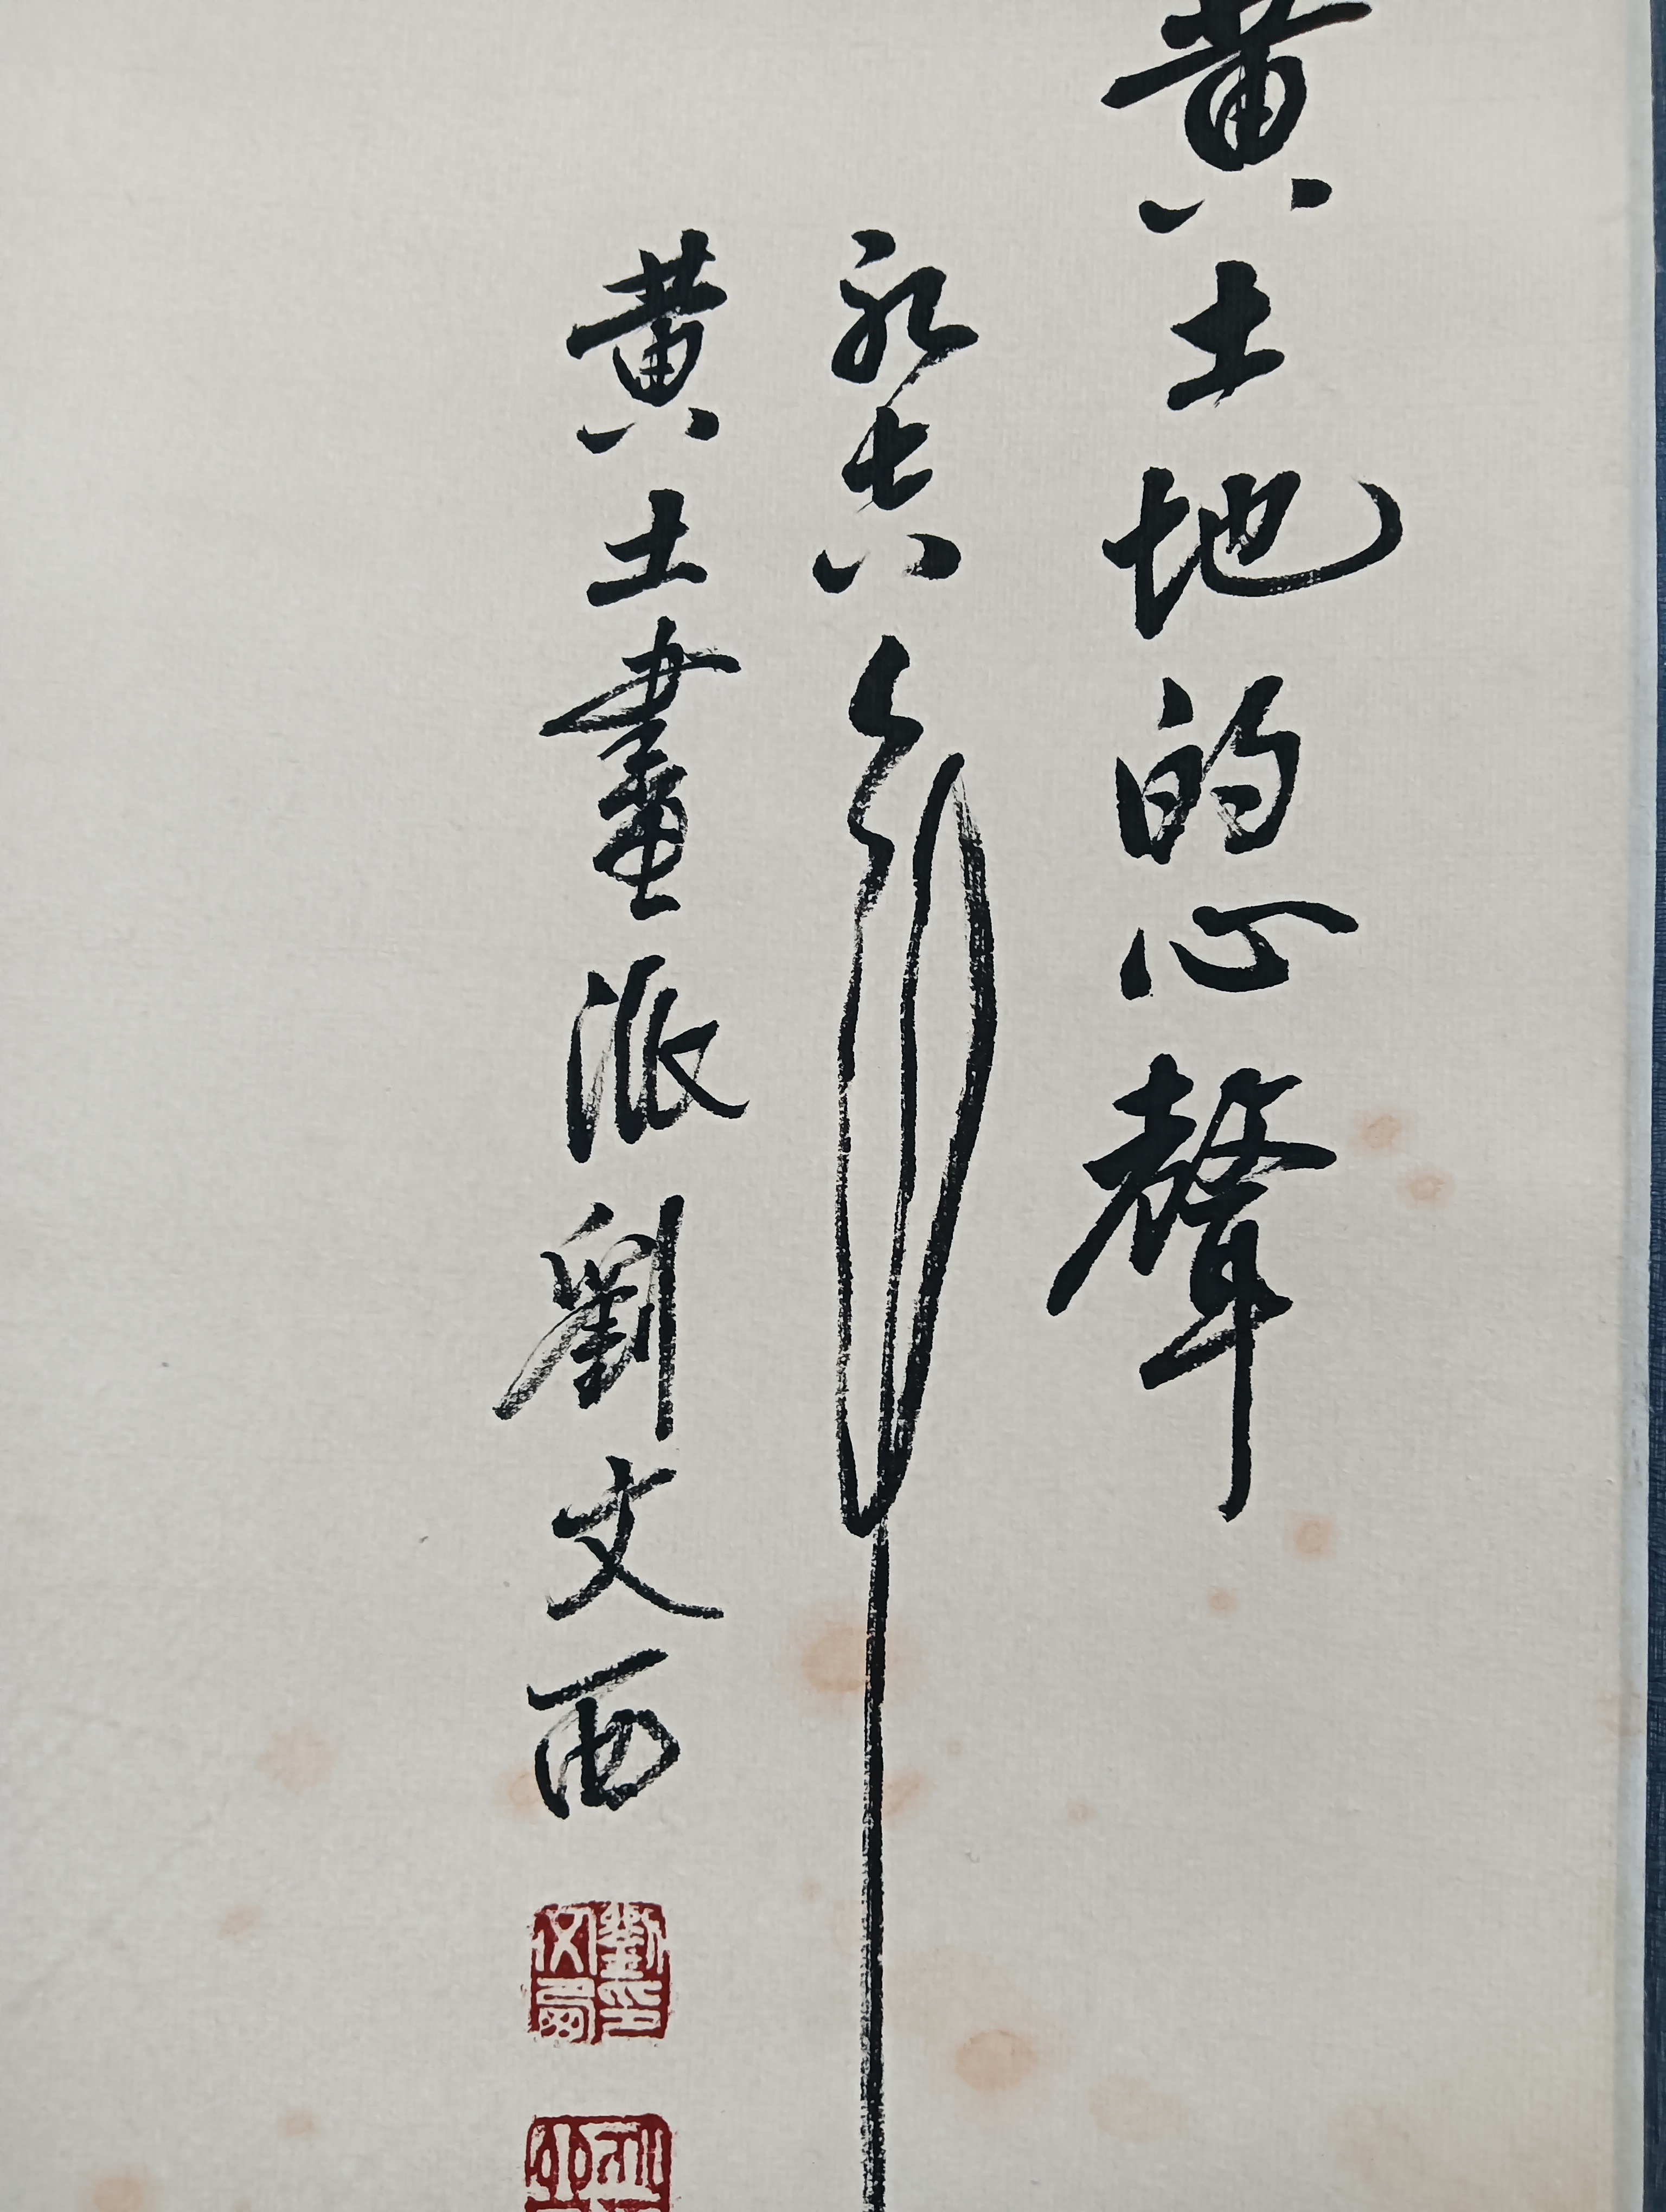 黄土地的心聲
永
黄土畫派劉文西
劉印
文西